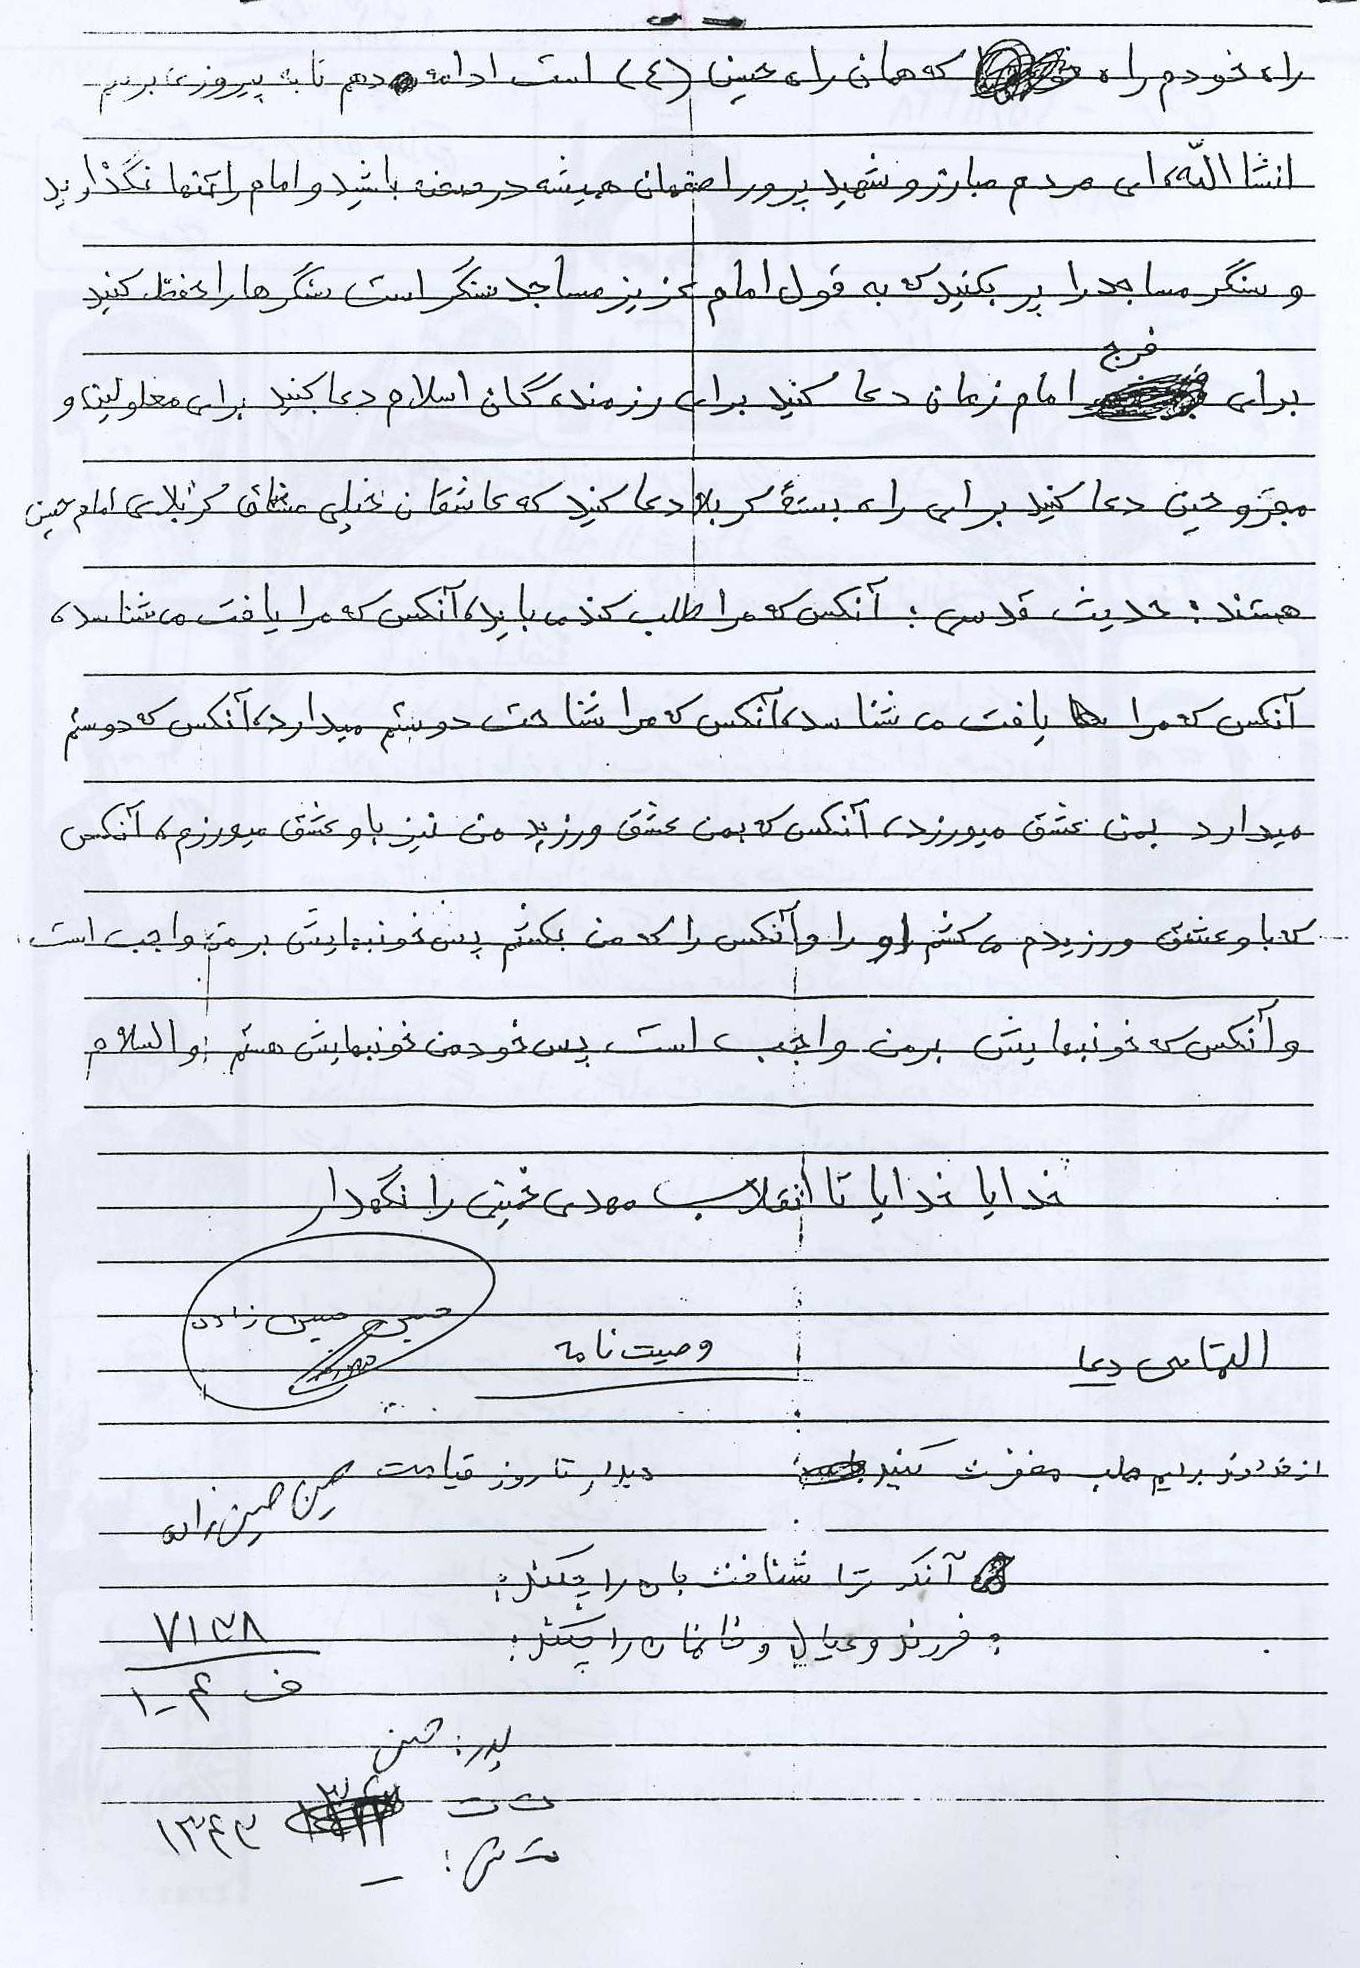 راه خودم راه که همان راه حسین (ع) است ادامه دهم تا به پیروزی برسم
انشا اللّه، ای مردم مبارز و شهید پرور اصفهان همیشه در صحنه باشید و امام را تنها نگذارید
و سنگر مساجد را پر بکنید که به قول امام عزیز مساجد سنگر است سنگرها را حفظ کنید
برای فرج امام زمان دعا کنید برای رزمنده گان اسلام دعا کنید برای معلولین و
مجروحین دعا کنید برای راه بستهٔ کربلا دعا کنید که عاشقان خیلی مشتاق کربلای امام حسین
هستند: حدیث قدسی: آنکس که مرا طلب کند می یابد، آنکس که مرا یافت می شناسد،
آنکس که مرا یافت می شناسد، آنکس که مرا شناخت دوستم میدارد، آنکس که دوستم
میدارد بمن عشق میورزد، آنکس که بمن عشق ورزید من نیز باو عشق میورزم، آنکس
که باو عشق ورزیدم می کشم او را و آنکس را که من بکشم پس خونبهایش بر من واجب است
و آنکس که خونبهایش بر من واجب است پس خود من خونبهایش هستم : والسلام
خدایا خدایا تا انقلاب مهدی خمینی را نگهدار
حسین حسین زاده
التماس دعا
وصیت نامه
از خداوند برایم طلب مغفرت کنید
دیدار تا روز قیامت
حسین حسین زاده
آنکه ترا شناخت جان را چکند:
: فرزند و عیال و خانمان را چکند:
۷۱۳۸
ف ۴-۱
پدر: حسن
ت ت ۱۳۴۳
ت ش: -